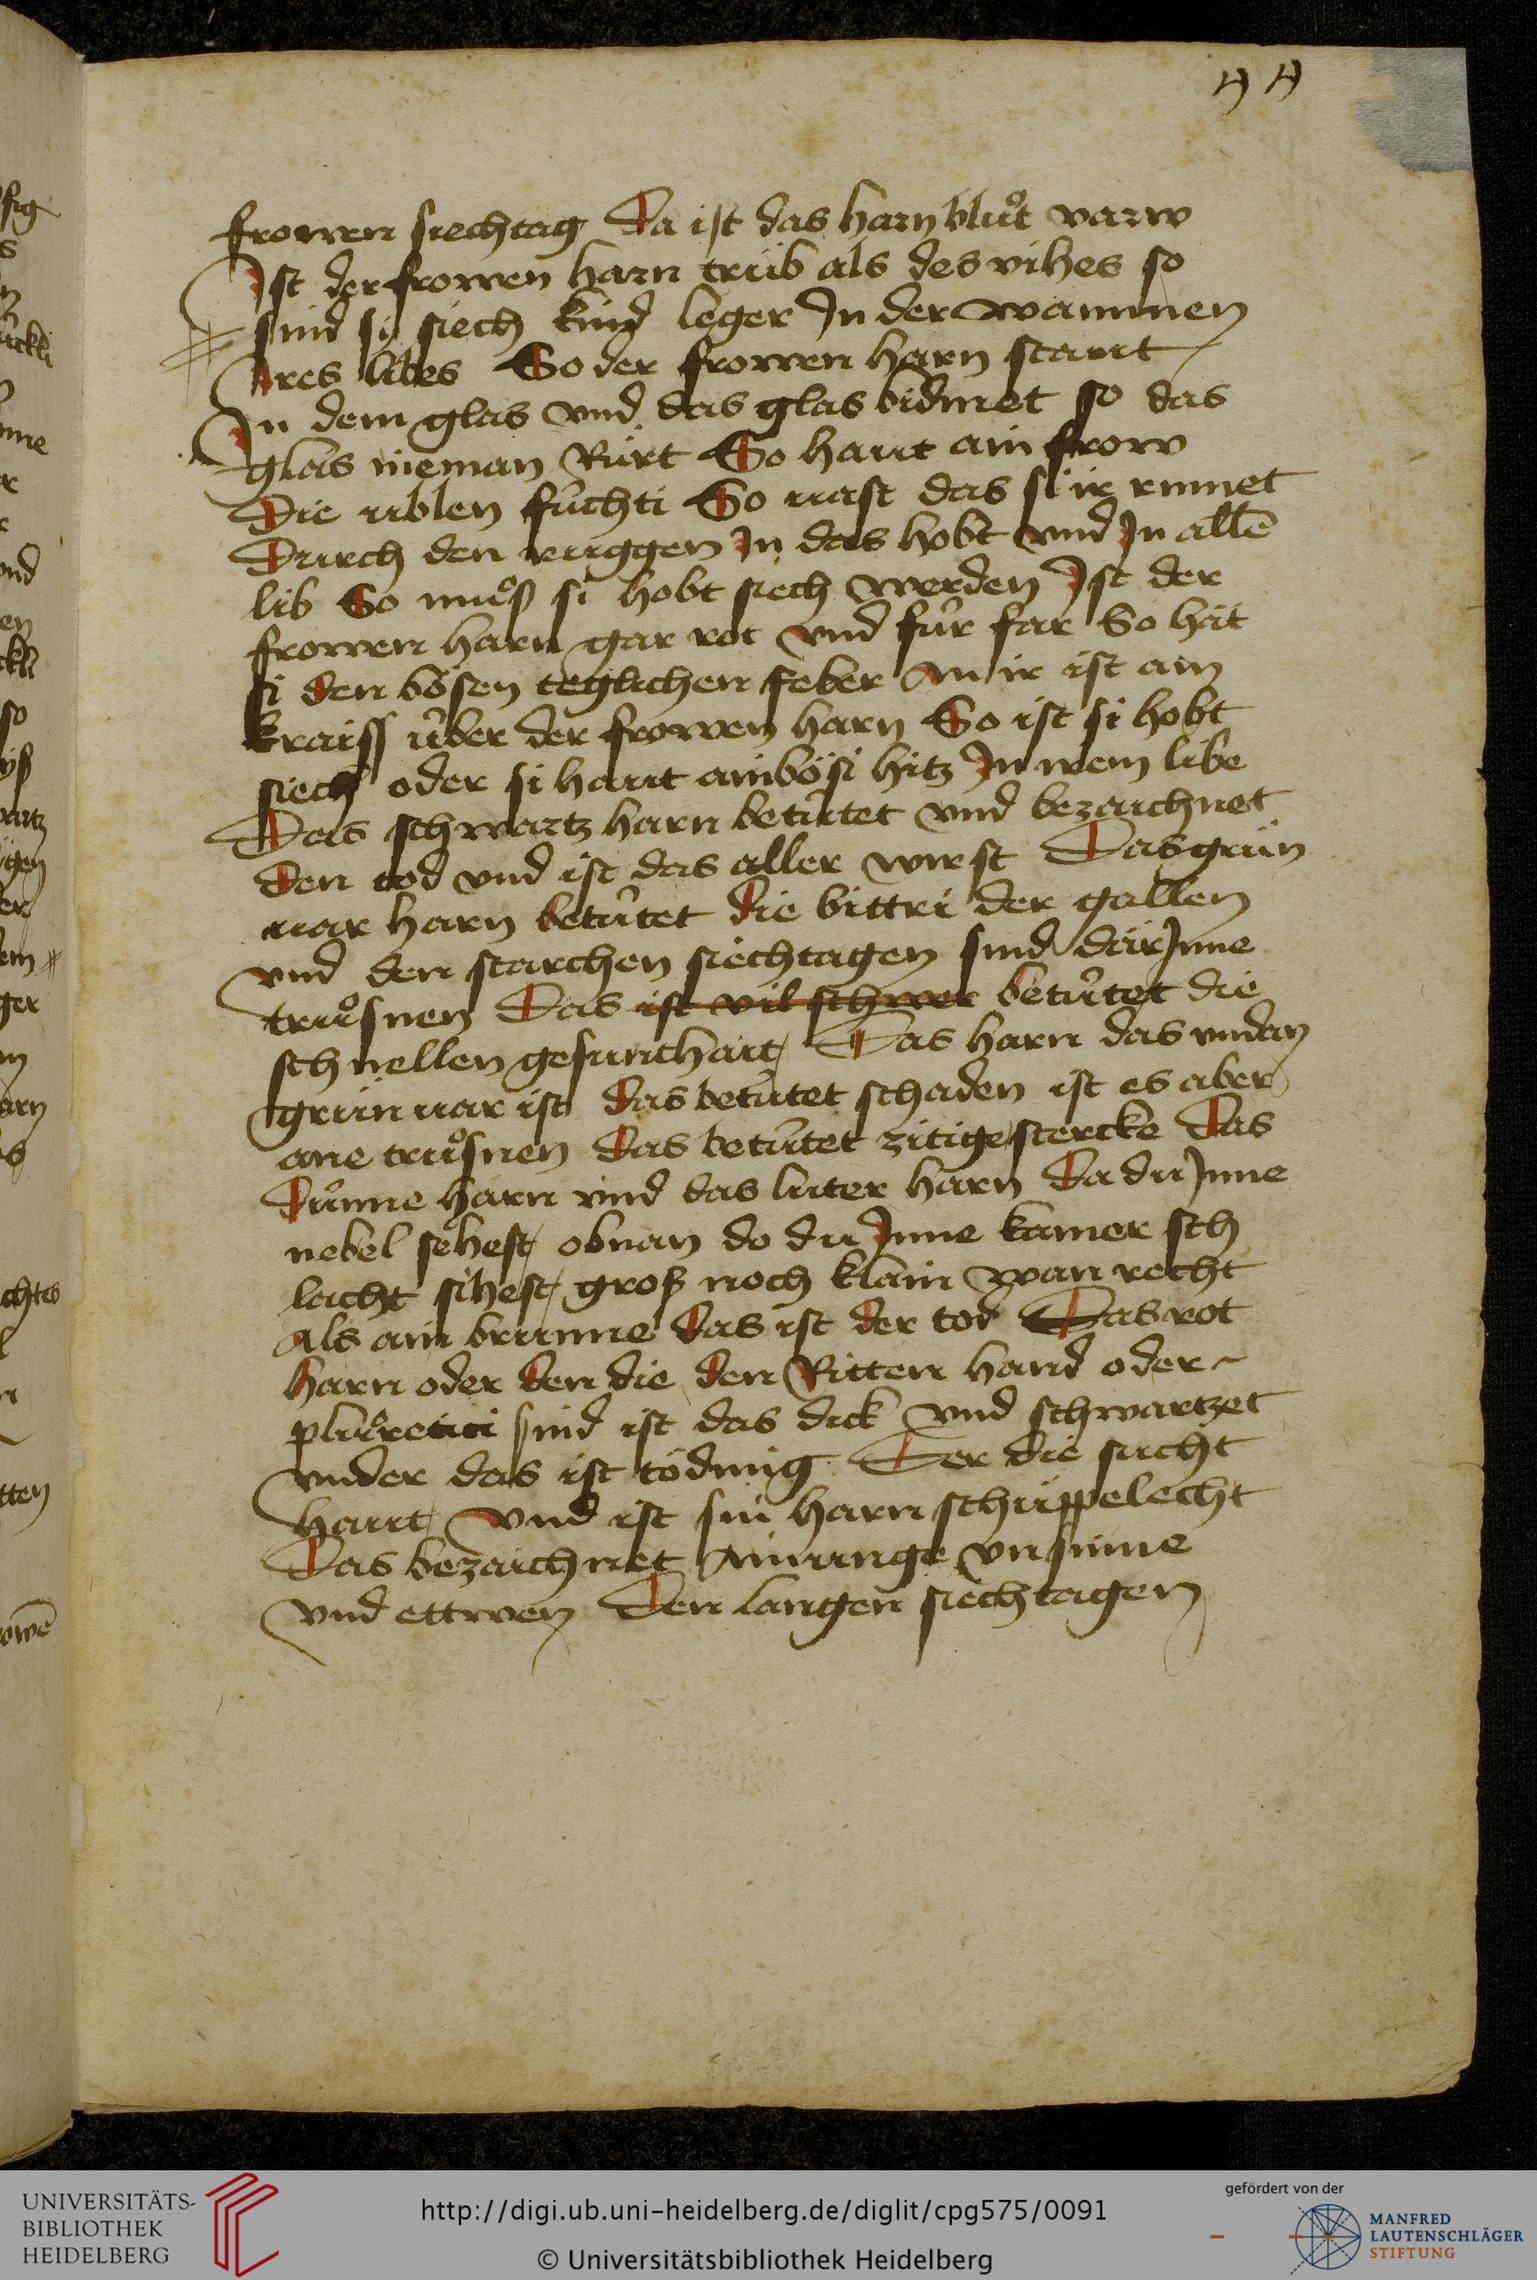 44
frowen siechtag Da ist das harn bluͦt varw
Ist der frowen harn trüb als des vihes so
sind si siech kind leger In der wammen
Ires libes So der frowen harn staut
In dem glas vnd das glas bidmet so das
glas nieman Rürt So haut ain frow
Die üblen füchti So uast das si ir rinnet
Durch den ruggen In das hobt vnd In allē
lib So muͦß si hobt siech werden Ist der
frowen harn gar rot vnd für far So hät
si den bösen teglichen feber An ir ist ain
kraiss über der frowen harn So ist si hobt
siech oder si haut ain bösi hitz In irem libe
Das schwartz harn betütet vnd bezaichnet
den tod vnd ist das aller wirst Das grün
uar harn betütet die bittri der gallen
vnd den starchen siechtagen sind dar Inne
truͦsnen Das ist vil schwer betütet die
schnellen gesunthait Das harn das vndan
grün uar ist das betütet schaden ist es aber
ane truͦsnen das betütet zitige stercke Das
dünne harn vnd das luter harn Da du Inne
nebel sehest obnan do du Inne kamer sch
lacht sihest groß noch klain wan recht
Als ain brunne das ist der tod Das rot
harn oder den die den Ritten hand oder
pluͤretici sind ist das dick vnd schwartzet
vnder das ist tödmig Der die sucht
haut vnd ist sin harn schüppelecht
Das bezaichnet vnsinne
vnd ettwen Den langen siechtagen
UNIVERSITÄTS-
BIBLIOTHEK
HEIDELBERG
http://digi.ub.uni-heidelberg.de/diglit/cpg575/0091
© Universitätsbibliothek Heidelberg
gefördert von der
MANFRED
LAUTENSCHLÄGER
STIFTUNG